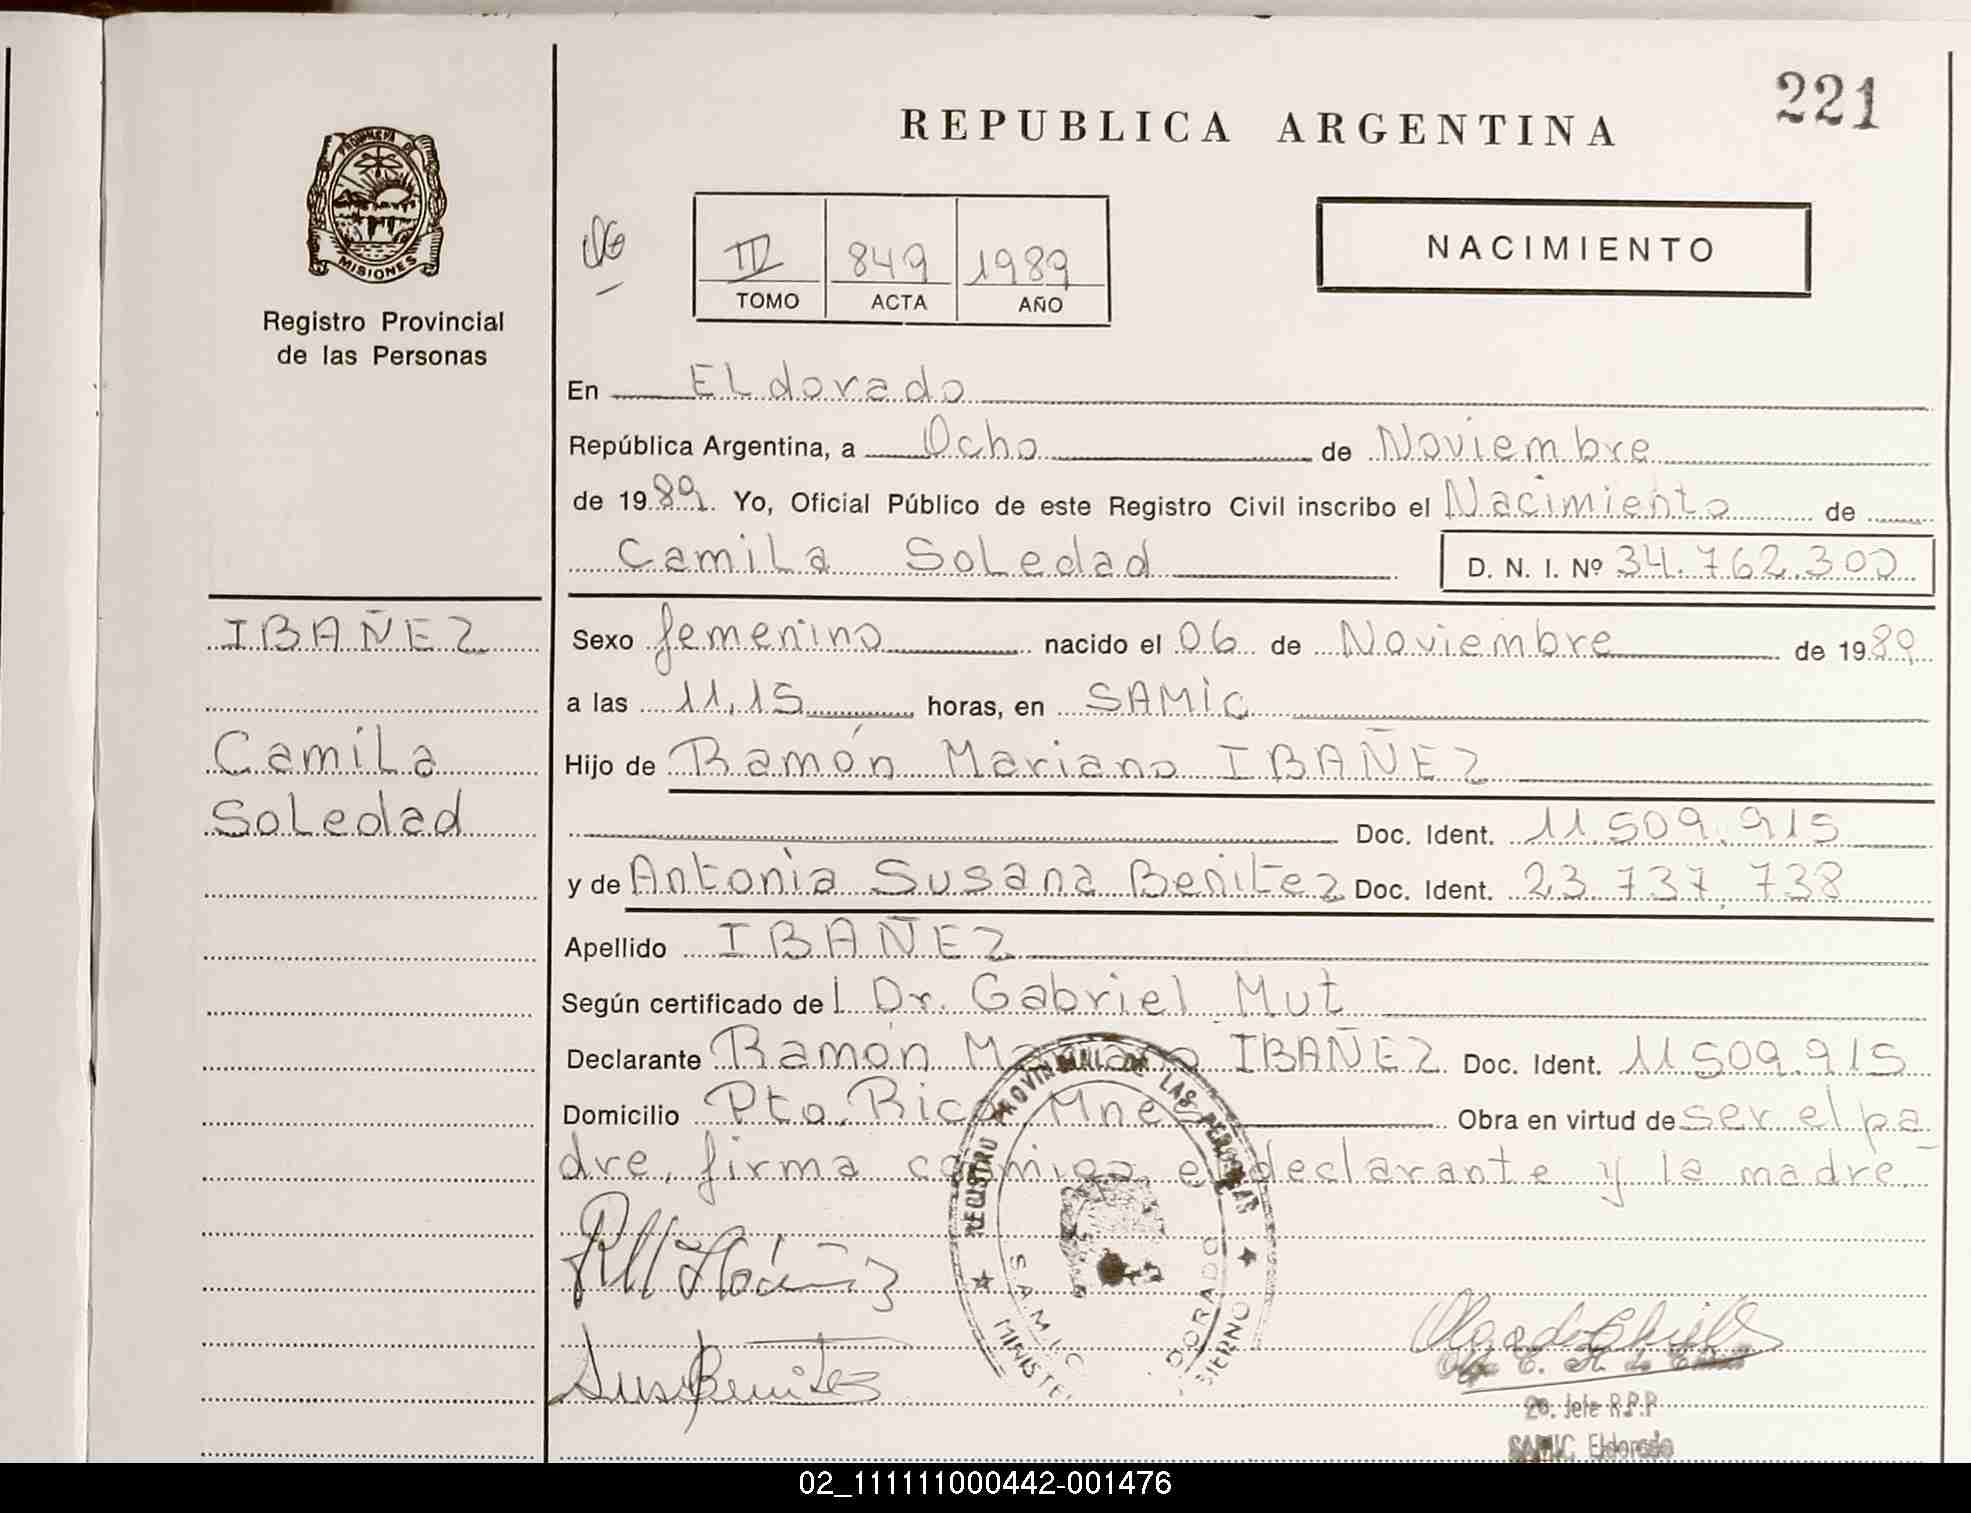 221
REPUBLICA ARGENTINA
PROVINCIA DE
MISIONES
Registro Provincial
de las Personas
III 849 1989
TOMO ACTA AÑO
NACIMIENTO
En ELdorado
República Argentina, a Ocho de Noviembre
de 1989. Yo, Oficial Público de este Registro Civil inscribo el Nacimiento de
CamiLa SoLedad D. N. I. Nº 34.762.300
IBAÑEZ
CamiLa
SoLedad
Sexo femenino nacido el 06 de Noviembre de 1989
a las 11,15 horas, en SAMiC
Hijo de Ramón Mariano IBAÑEZ
Doc. Ident. 11.509.915
y de Antonia Susana Benitez Doc. Ident. 23.737.738
Apellido IBAÑEZ
Según certificado de l Dr. Gabriel Mut
Declarante Ramón Mariano IBAÑEZ Doc. Ident. 11.509.915
Domicilio Pto. Rico Mnes Obra en virtud de ser el pa-
dre, firma conmigo el declarante y la madre.
REGISTRO PROVINCIAL DE LAS PERSONAS
S.A.M.I.C.
2o. Jefe R.P.P
SAMIC Eldorado
02_111111000442-001476